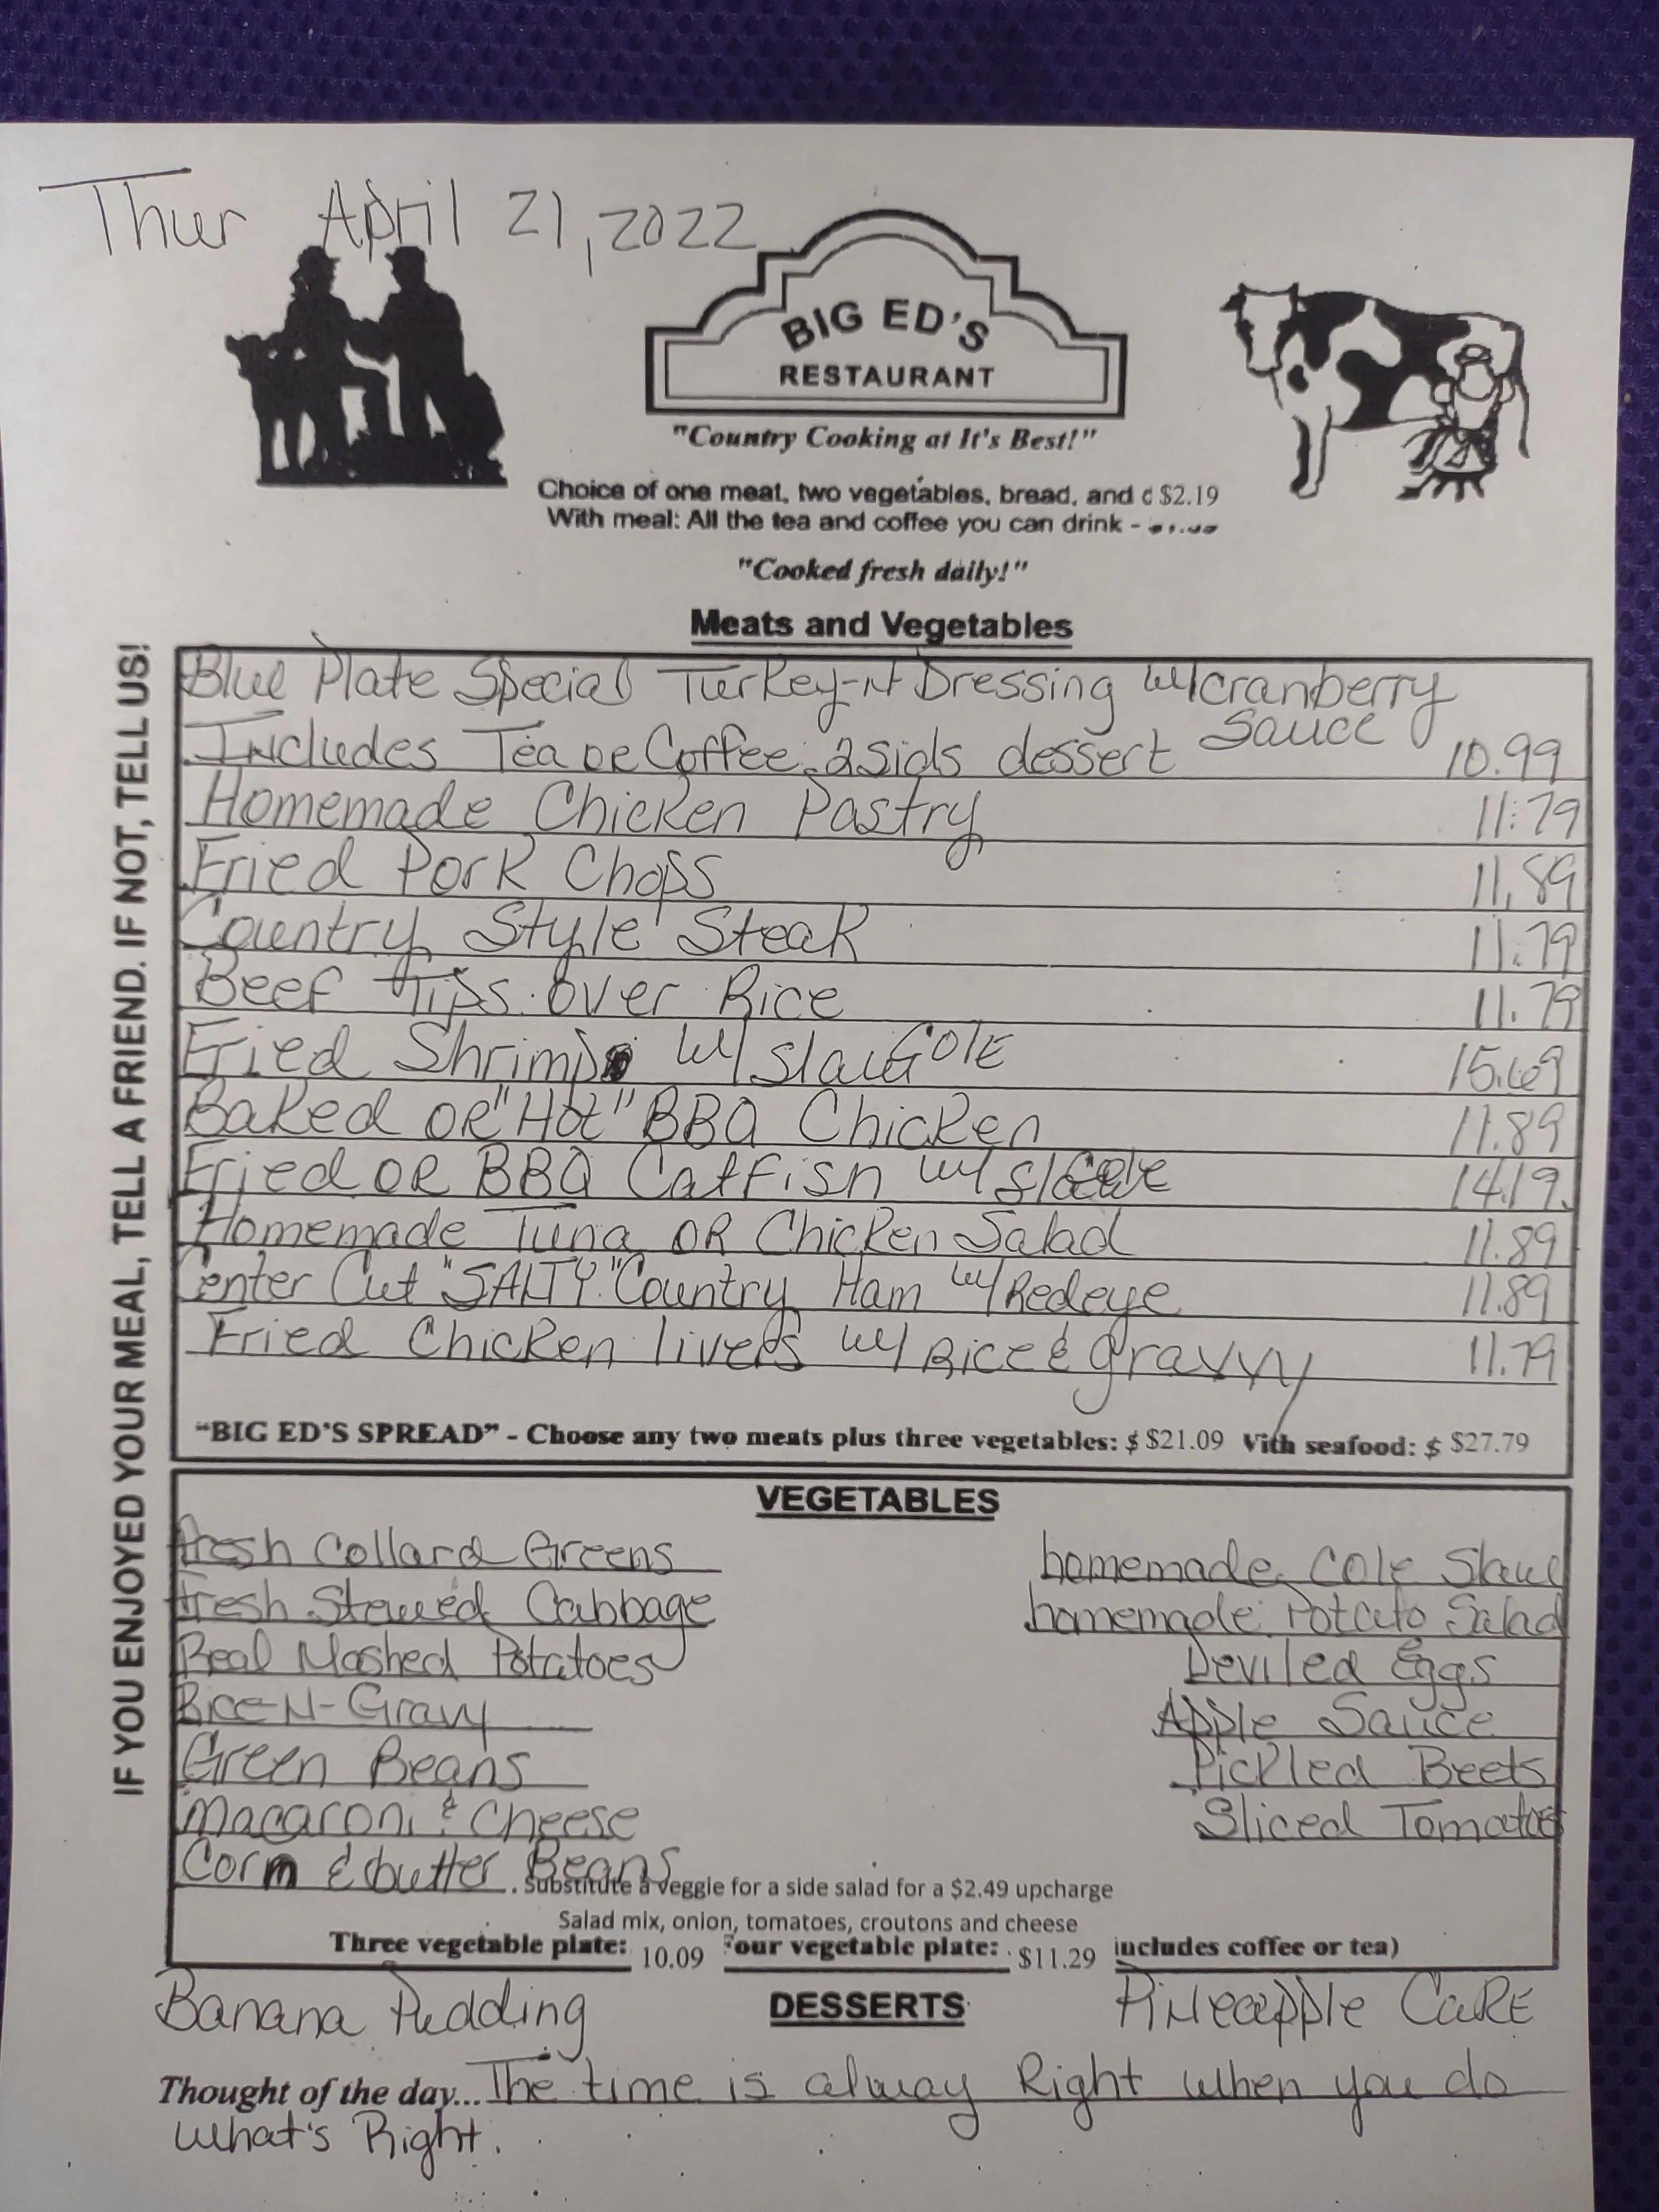 Thur April 21, 2022
BIG ED'S
RESTAURANT
"Country Cooking at It's Best!"
Choice of one meat, two vegetables, bread, and $2.19
With meal: All the tea and coffee you can drink -
"Cooked fresh daily!"
Meats and Vegetables
IF YOU ENJOYED YOUR MEAL, TELL A FRIEND. IF NOT, TELL US!
Blue Plate Special Turkey-N Dressing w/cranberry
Sauce
Includes Tea or Coffee. 2 Sids dessert 10.99
Homemade Chicken Pastry 11.79
Fried Pork Chops 11.89
Country Style Steak 11.79
Beef Tips over Rice 11.79
Fried Shrimp w/ Slaw COlE 15.69
Baked OR "Hot" BBQ Chicken 11.89
Fried OR BBQ Catfish w/ 14.19
Homemade Tuna OR Chicken Salad 11.89
Center Cut "SALTY" Country Ham w/ Redeye 11.89
Fried Chicken livers w/ Rice & gravvy 11.79
"BIG ED'S SPREAD" - Choose any two meats plus three vegetables: $ $21.09 With seafood: $ $27.79
VEGETABLES
fresh Collard Greens homemade Cole Slaw
fresh Stewed Cabbage homemade Potato Salad
Real Mashed Potatoes Deviled Eggs
Rice-N-Gravy Apple Sauce
Green Beans Pickled Beets
Macaroni & Cheese Sliced Tomatoes
Corn & butter Beans
Substitute a veggie for a side salad for a $2.49 upcharge
Salad mix, onion, tomatoes, croutons and cheese
Three vegetable plate: 10.09 Four vegetable plate: $11.29 includes coffee or tea)
Banana Pudding DESSERTS Pineapple CaKE
Thought of the day... The time is alway Right when you do
what's Right.